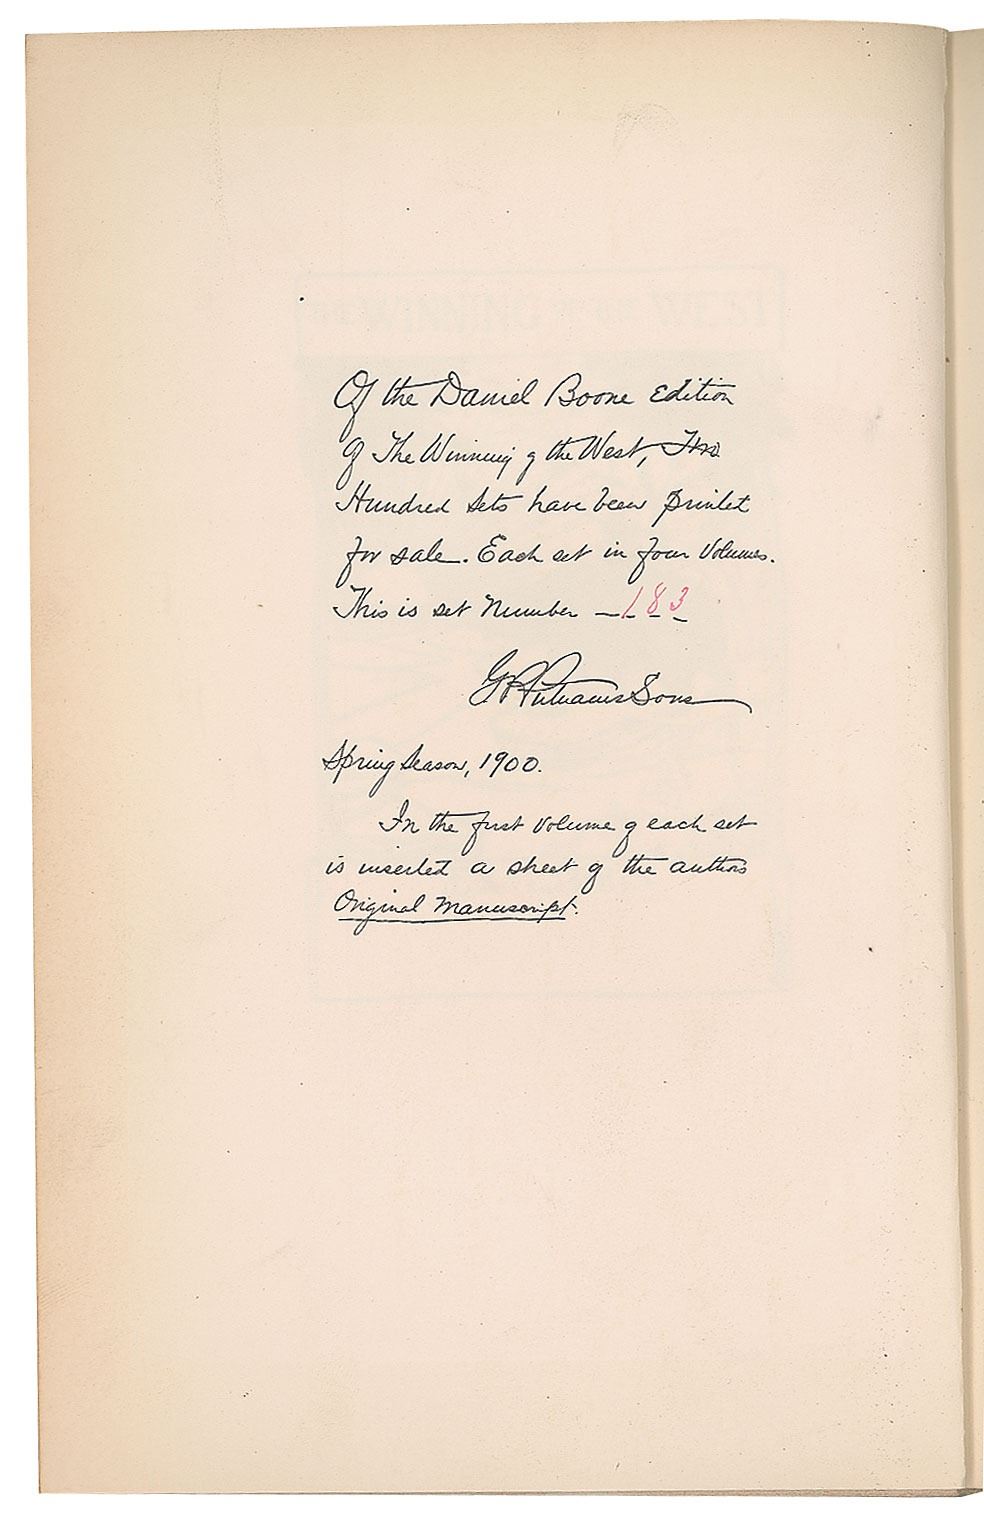 THE WINNING OF THE WEST
Of the Daniel Boone Edition
of The Winning of the West, Two
Hundred sets have been printed
for sale. Each set in four volumes.
This is set Number 183
G P Putnams Sons
Spring Season, 1900.
In the first volume of each set
is inserted a sheet of the authors
Original Manuscript.